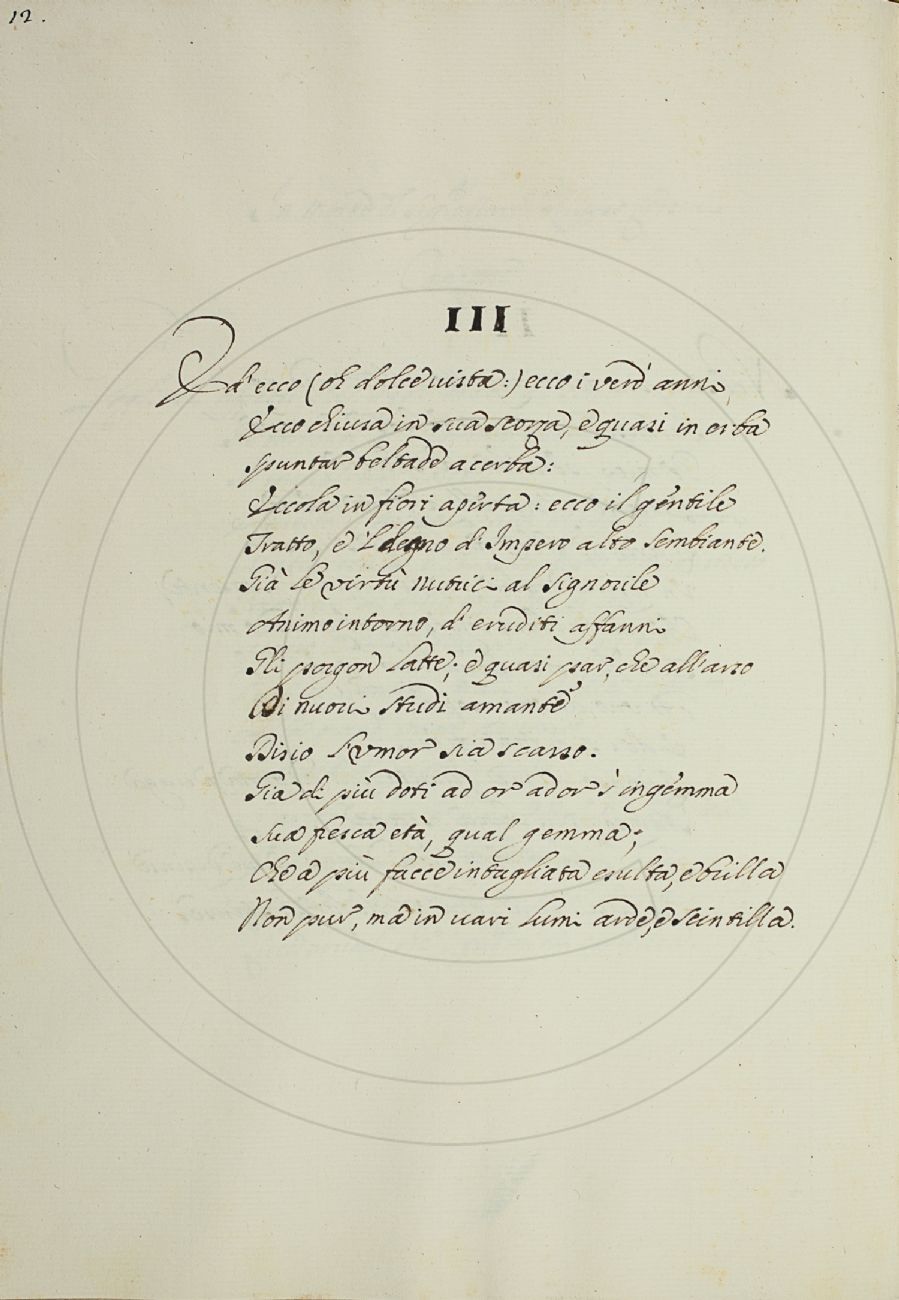 12.
III
Ed' ecco (oh dolce vista:) ecco i verd' anni,
Ecco chiusa in sua scorza, e quasi in erba
Spuntar beltade acerba:
Eccola in fiori aperta: ecco il gentile
Tratto, e 'l degno d' Impero alto sembiante.
Già le virtù nutrici al signorile
Animo intorno, d' eruditi affanni
Gli porgon latte; e quasi par, che all' arso
Di nuovi studi amante
Disio l' umor sia scarso.
Già di più doti ad or ad or s' ingemma
Sua fresca età, qual gemma;
Che a più facce intagliata esulta, e brilla
Non pur, ma in vari lumi arde, e scintilla.